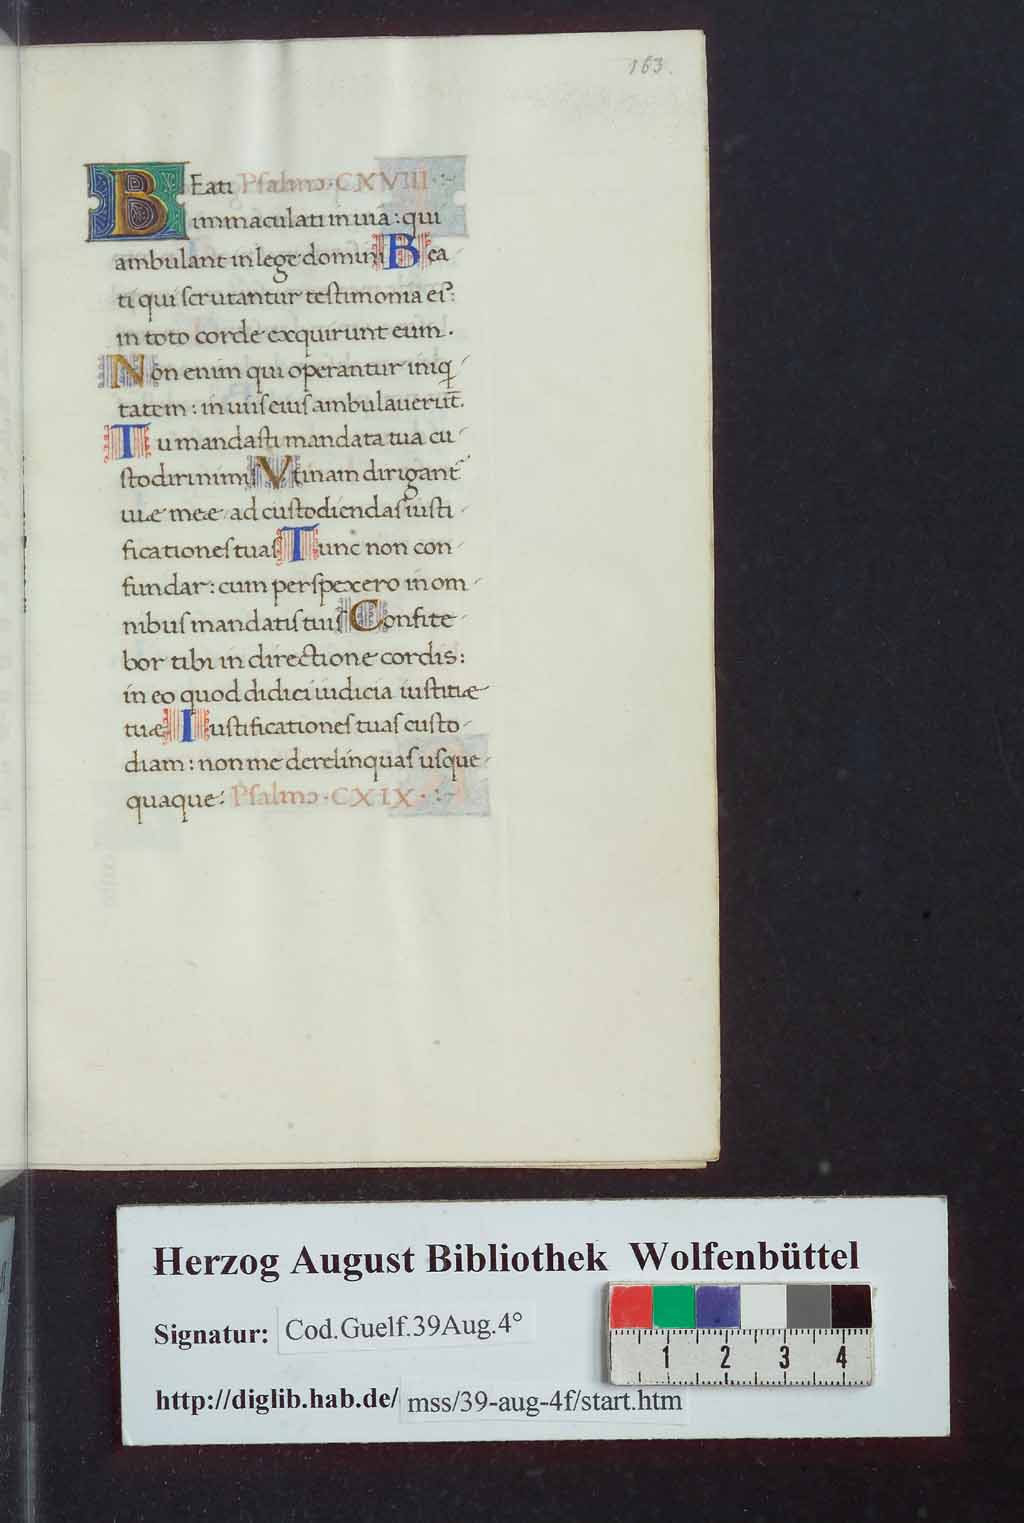 163.
BEati Psalmo·CXVIII·
immaculati in uia: qui
ambulant in lege domini Bea
ti qui scrutantur testimonia ei⁹:
in toto corde exquirunt eum.
Non enim qui operantur iniq
tatem: in uiis eius ambulauerūt.
Tu mandasti mandata tua cu
stodiri nimis Vtinam dirigant
uiæ meæ ad custodiendas iusti
ficationes tuas Tunc non con
fundar: cum perspexero in om
nibus mandatis tuis Confite
bor tibi in directione cordis:
in eo quod didici iudicia iustitiæ
tuæ Iustificationes tuas custo
diam: non me derelinquas usque
quaque: Psalmo·CXIX·
Herzog August Bibliothek Wolfenbüttel
Signatur: Cod.Guelf.39Aug.4°
http://diglib.hab.de/ mss/39-aug-4f/start.htm
1 2 3 4